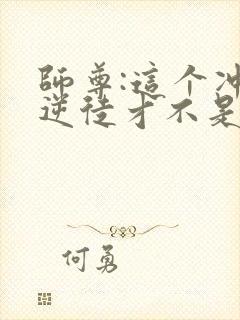 師尊:這个冲
逆徒才不是
何勇